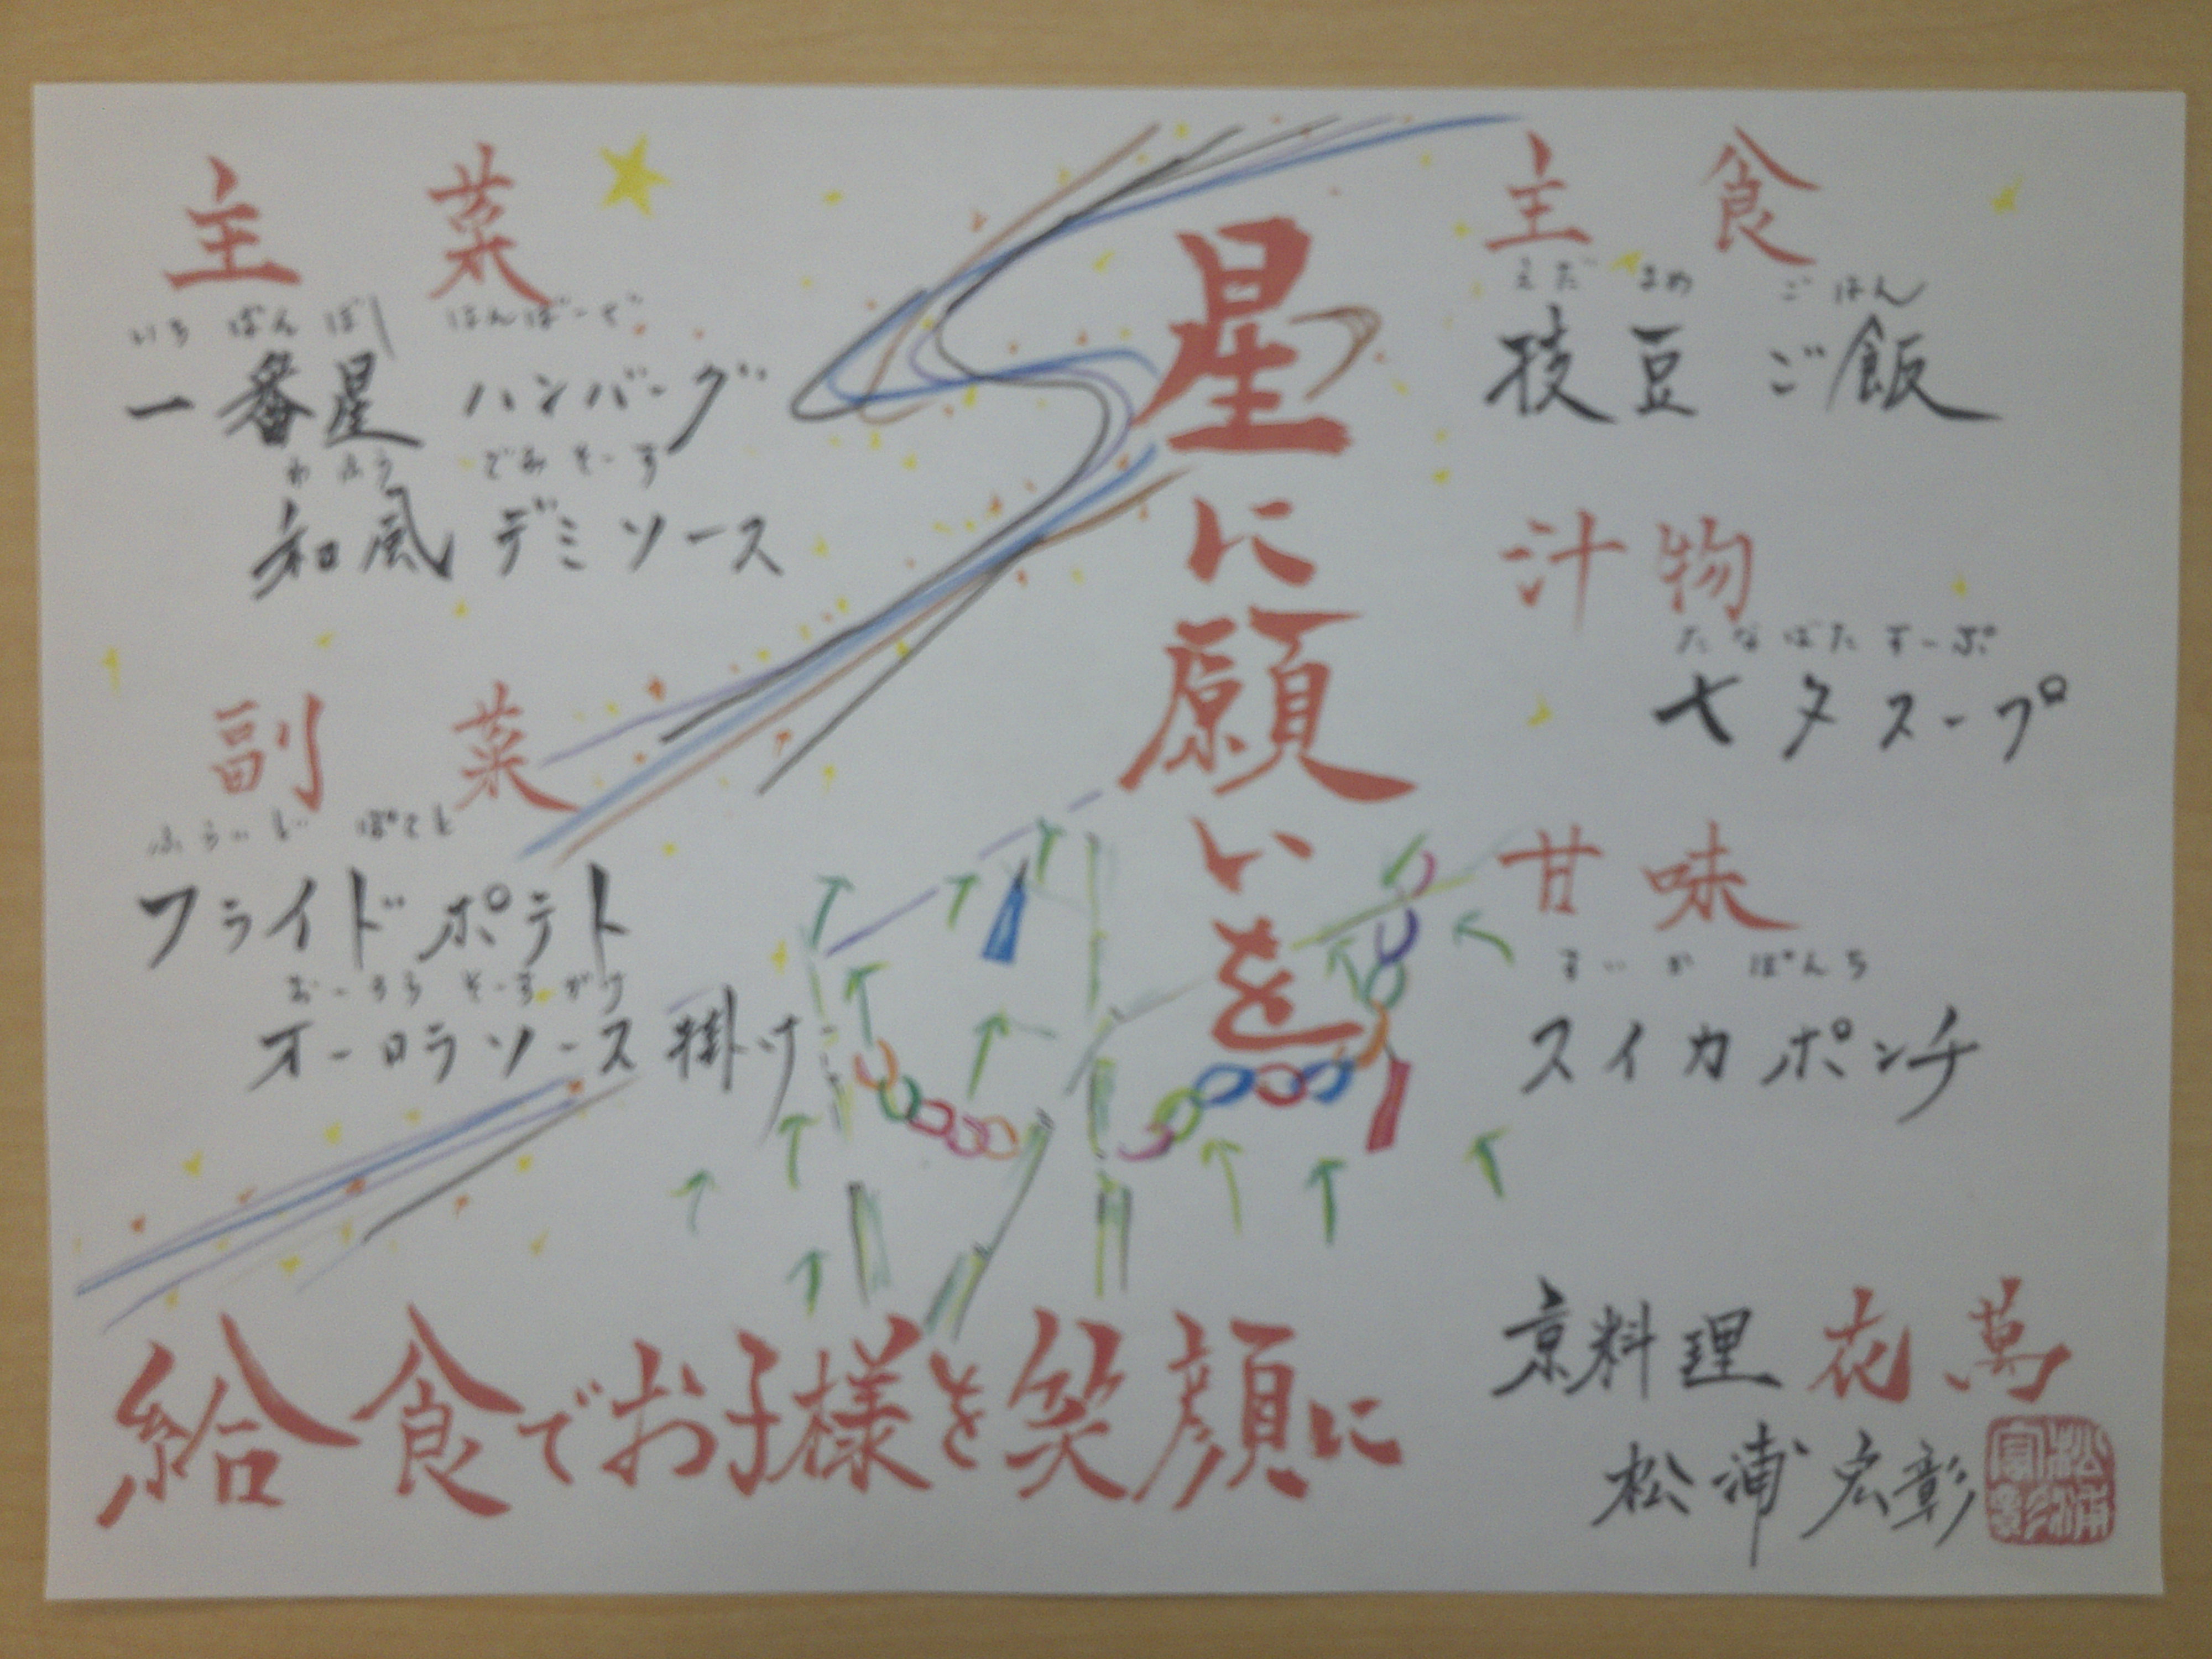 星に願いを
主食
えだまめごはん
枝豆ご飯
汁物
たなばたすーぷ
七夕スープ
甘味
すいかぽんち
スイカポンチ
主菜
いちばんぼし はんばーぐ
一番星 ハンバーグ
わふう でみそーす
和風 デミソース
副菜
ふらいど ぽてと
フライドポテト
おーろらそーすがけ
オーロラソース掛け
給食でお子様を笑顔に
京料理 花萬
松浦宏彰
松浦宏彰